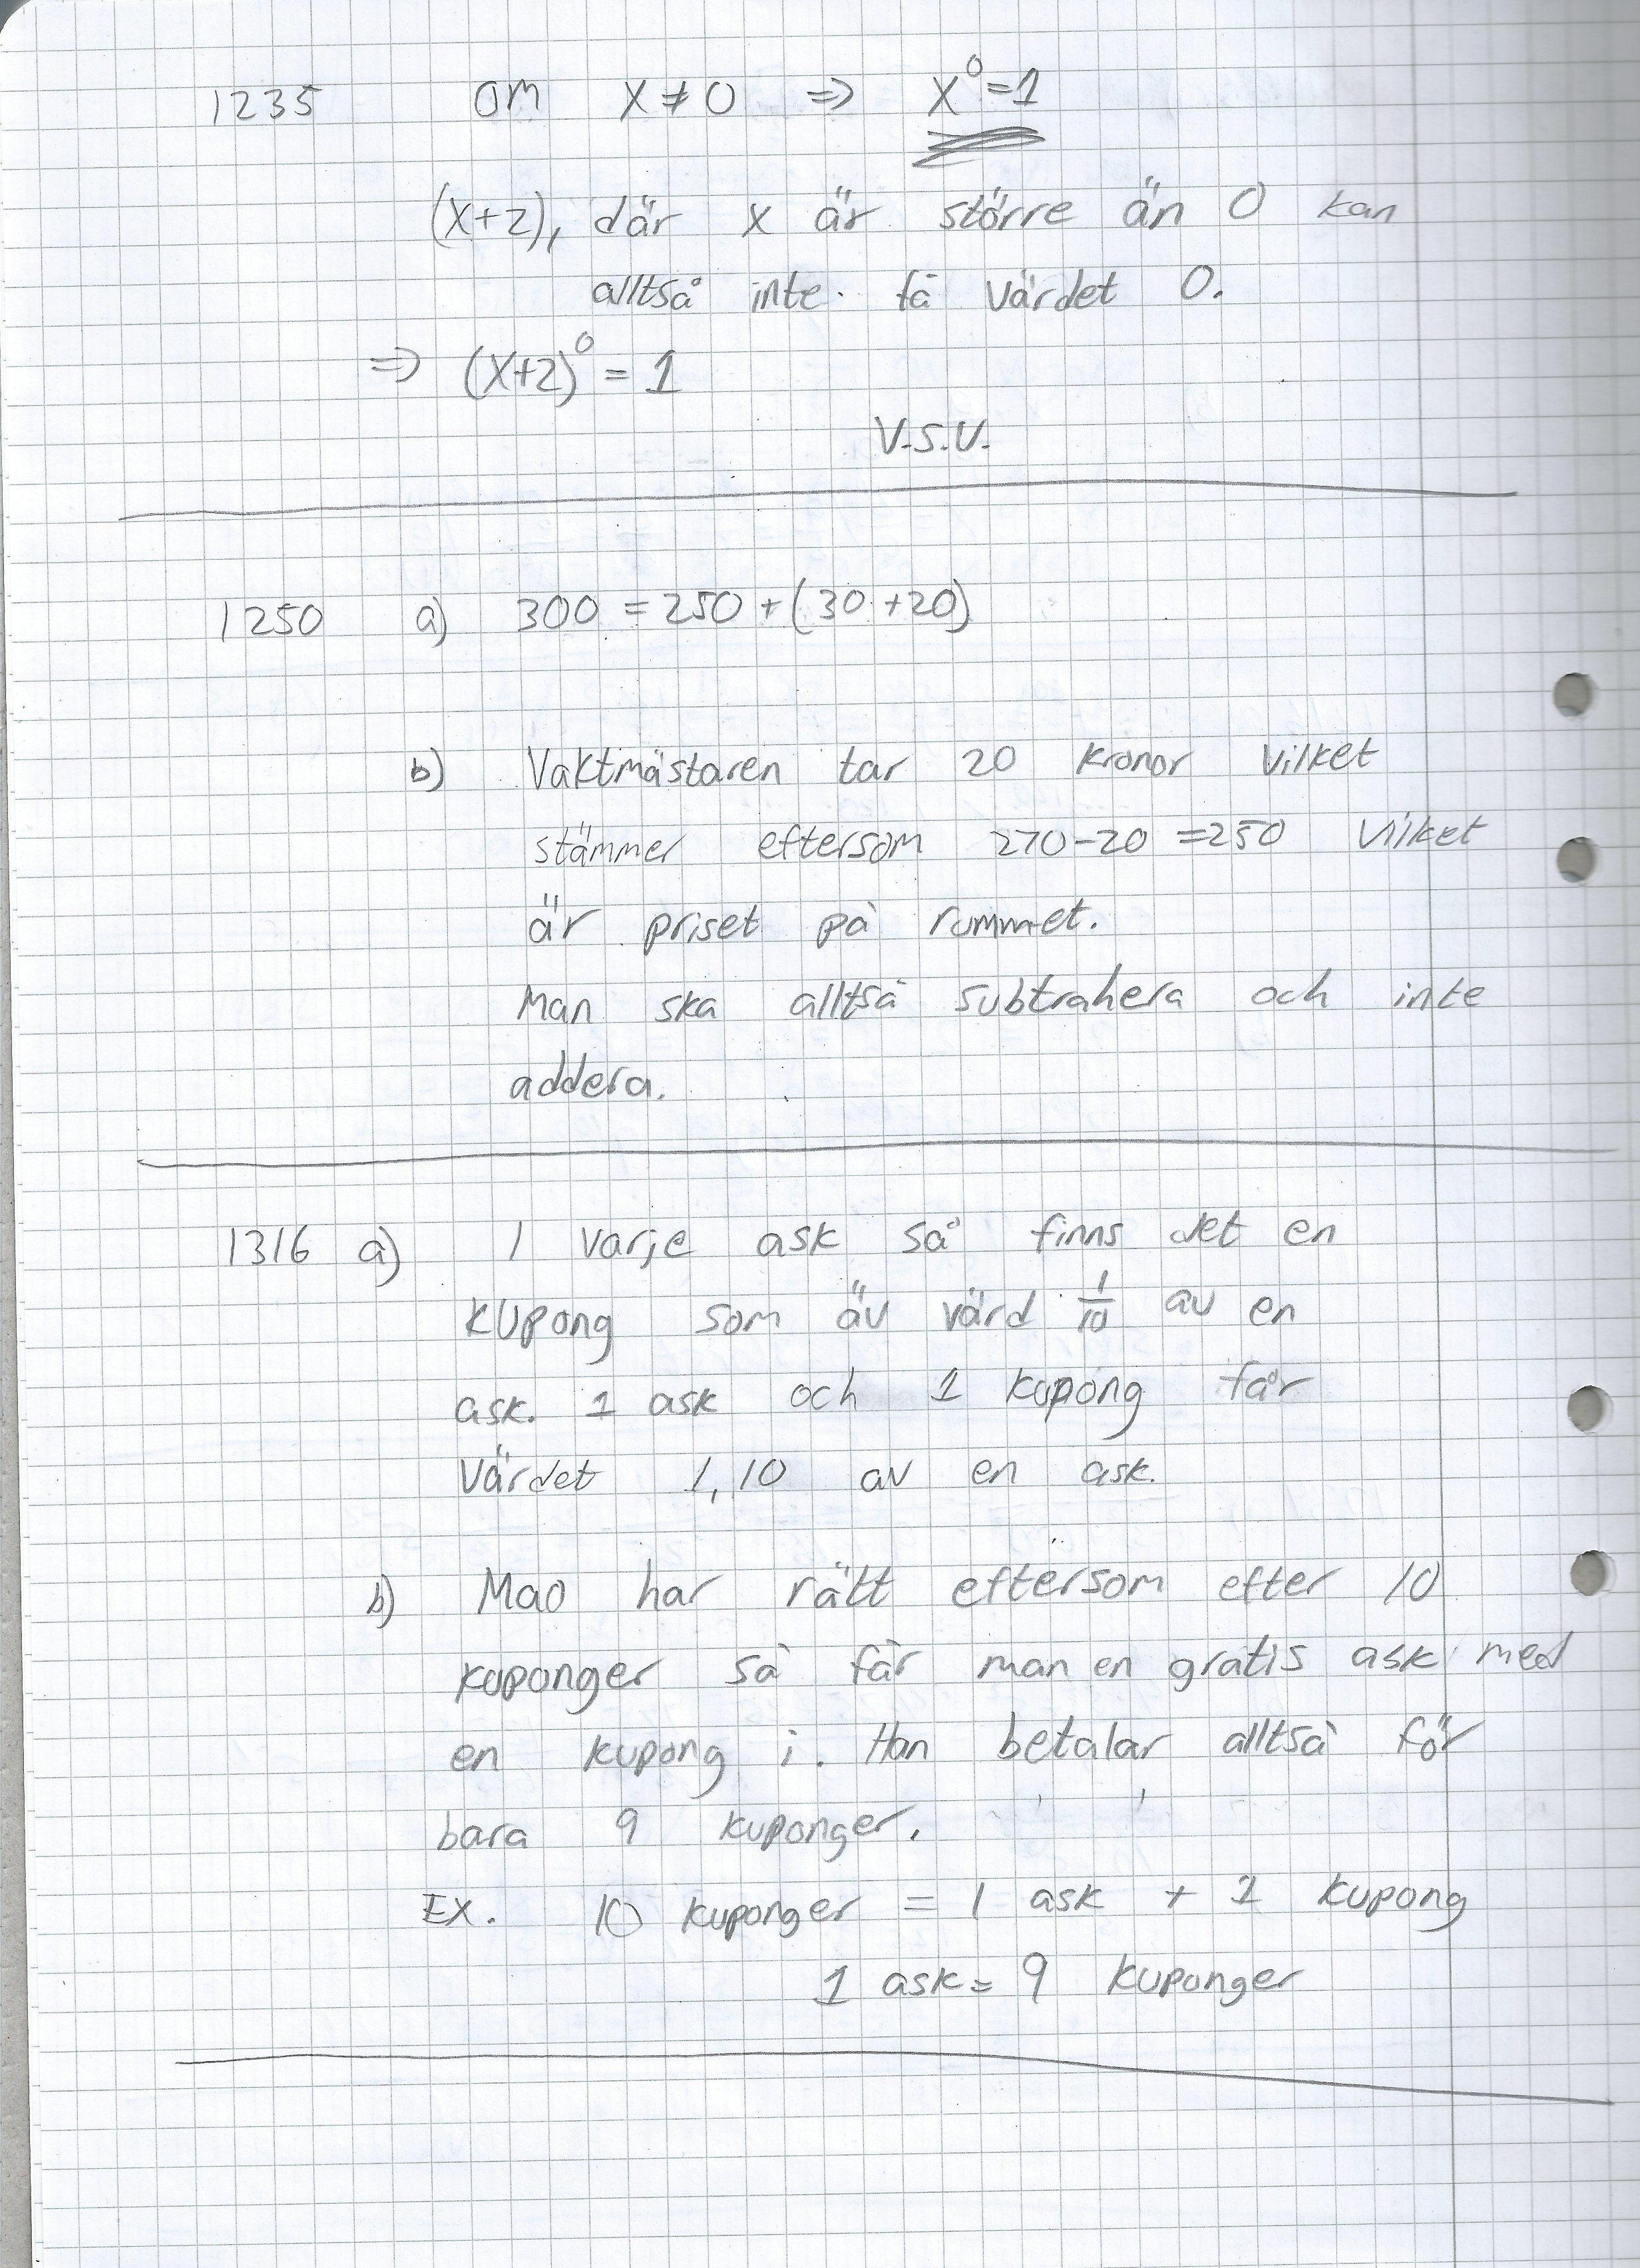 1235 om x ≠ 0 ⇒ x⁰=1
(x+2), där x är större än 0 kan
alltså inte få värdet 0.
⇒ (x+2)⁰ = 1
V.S.V.
1250 a) 300 = 250 + (30 + 20)
b) Vaktmästaren tar 20 kronor vilket
stämmer eftersom 270-20 = 250 vilket
är priset på rummet.
Man ska alltså subtrahera och inte
addera.
1316 a) I varje ask så finns det en
kupong som äv värd 1/10 av en
ask. 1 ask och 1 kupong får
värdet 1,10 av en ask.
b) Mao har rätt eftersom efter 10
kuponger så får man en gratis ask med
en kupong i. Han betalar alltså för
bara 9 kuponger.
EX. 10 kuponger = 1 ask + 1 kupong
1 ask = 9 kuponger